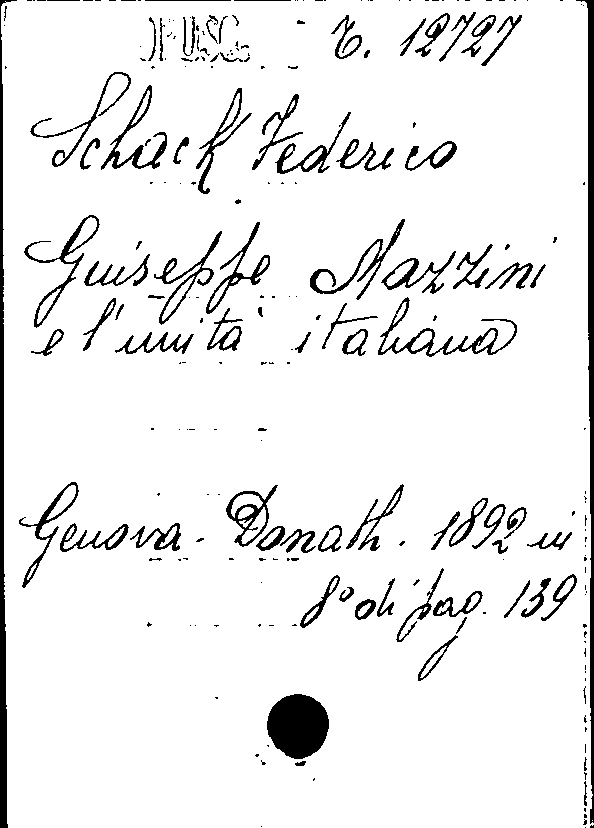 RISG. T. 12727
Schack Federico
Giuseppe Mazzini
e l'unità italiana
Genova. Donath. 1892 in
8° di pag. 139